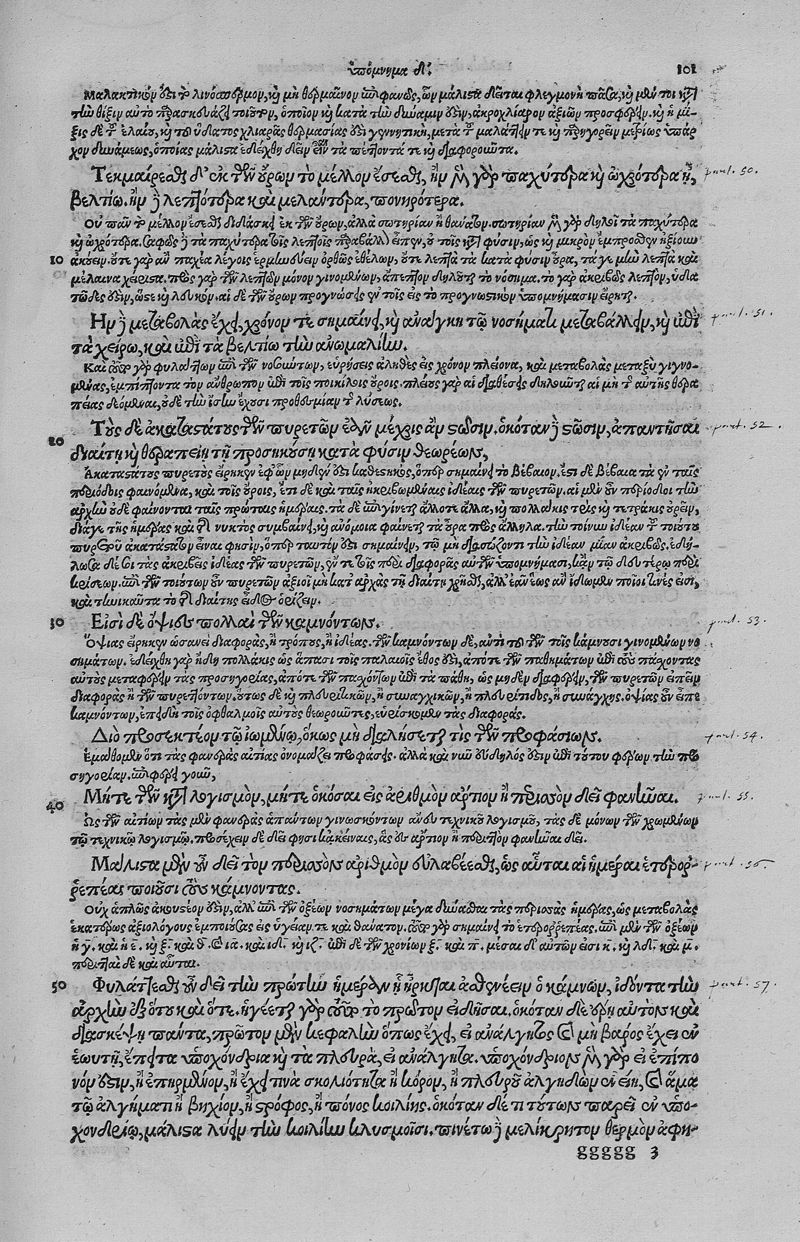 ὑπόμνημα δ'. 101
Μαλακτικόν ἐστι τὸ λινόσπερμον, καὶ μὴ θερμαῖνον ἐπιφανῶς, ὧν μάλιστα δεῖται φλεγμονὴ πᾶσα, καὶ μὲν τοι καὶ
τὴν θίξιν αὐτὸ παρασκευάζει τοιοῦτον, ὁποῖον καὶ κατὰ τὴν δύναμίν ἐστιν, ἀκροχλίαρον ἀξιῶν προσφέρειν, καὶ ἡ μί-
ξις δὲ τοῦ ἐλαίου, καὶ τοῦ ὕδατος χλιαρᾶς θερμασίας ἐστὶ γεννητικὴ, μετὰ τοῦ μαλάττειν τε καὶ παρηγορεῖν μετρίως ὑπάρ-
χον δυνάμεως, ὁποίας μάλιστα ἐλέχθη δεῖν εἶναι τὰ πέττοντά τε καὶ διαφοροῦντα.
Τεκμαίρεσθαι δ' ἐκ τῶν οὔρων τὸ μέλλον ἔσεσθαι, ἢν μὲν γὰρ παχύτερα καὶ ὠχρότερα ᾖ, part. 50.
βελτίω. ἢν δὲ λεπτότερα καὶ μελάντερα, πονηρότερα.
Οὐ πᾶν τὸ μέλλον ἔσεσθαι διδάσκει ἐκ τῶν οὔρων, ἀλλὰ σωτηρίαν ἢ θάνατον. σωτηρίαν μὲν γὰρ δηλοῖ τὰ παχύτερα
καὶ ὠχρότερα. σαφῶς δὲ τὰ παχύτερα τοῖς λεπτοῖς παραβάλλων εἶπεν, οὐ τοῖς κατὰ φύσιν, ὡς καὶ μικρὸν ἔμπροσθεν ἠξίουν
10 ἀκούειν. οὔτε γὰρ ἂν παχέα λέγοις ἑρμηνεύειν ὀρθῶς ἐθέλων, οὔτε λεπτὰ τὰ κατὰ φύσιν οὖρα, τά γε μὴν λεπτὰ καὶ
μέλαινα χείριστα. πρὸς γὰρ τῶν λεπτῶν μόνον γινομένων, ἄπεπτον δηλοῦται τὸ νόσημα. τὸ γὰρ ἀκριβῶς λεπτὸν, ὑδα
τῶδές ἐστιν, ὥστε καὶ λευκόν. αἱ δὲ τῶν οὔρων προγνώσεις ἐν τοῖς εἰς τὸ προγνωστικὸν ὑπομνήμασιν εἴρηνται.
Ἢν δὲ μεταβολὰς ἔχῃ, χρόνον τε σημαίνει, καὶ ἀνάγκη τῷ νοσήματι μεταβάλλειν, καὶ ἐπὶ part. 51.
τὰ χείρω, καὶ ἐπὶ τὰ βελτίω τὴν ἀνωμαλίην.
Καὶ τοῦτο φυλάττων ἐπὶ τῶν νοσούντων, εὑρήσεις ἀληθὲς εἰς χρόνον πλείονα, καὶ μεταβολὰς μεταξὺ γιγνο-
μένας, ἐμπίπτοντα τὸν ἄνθρωπον ἐπὶ τοῖς ποικίλοις οὔροις. πλείους γὰρ αἱ διαθέσεις δηλοῦνται αἱ μὴ τῆς αὐτῆς θερα
πείας δεόμεναι, οὐδὲ τὴν ἴσην ἔχουσι προθεσμίαν τῆς λύσεως.
20 Τοὺς δὲ ἀκαταστάτους τῶν πυρετῶν ἐᾶν μέχρις ἂν στῶσιν. ὁκόταν δὲ στῶσιν, ἀπαντῆσαι part. 52.
διαίτῃ καὶ θεραπείῃ τῇ προσηκούσῃ κατὰ φύσιν θεωρέων,
Ἀκατάστατος πυρετὸς εἴρηκεν ἐφ' ὧν μηδέν ἐστι καθεστηκὸς, ὅπερ σημαίνει τὸ βέβαιον. ἔτι δὲ βέβαια τὰ ἐν ταῖς
περιόδοις φαινόμενα, καὶ τοῖς οὔροις, ἔτι δὲ καὶ ταῖς ἠκριβωμέναις ἰδέαις τῶν πυρετῶν. αἱ μὲν ἐν περίοδοι τὴν
ἀρχὴν οὐδὲ φαίνονται ταῖς πρώταις ἡμέραις. τὰ δὲ ἐπιγίνεται ἄλλοτε ἄλλα, καὶ πολλάκις τρὶς καὶ τετράκις οὐρεῖν,
διά γε τῆς ἡμέρας καὶ τῆς νυκτὸς συμβαίνει, καὶ ἀνόμοια φαίνεται τὰ οὖρα πρὸς ἄλληλα. τὴν τοίνυν ἰδέαν τοῦ τοιούτου
πυρετοῦ ἀκατάστατον εἶναί φησιν, ὅπερ ταυτόν ἐστι σημαίνειν, τῷ μὴ διασώζοντι τὴν ἰδέαν μίαν ἀκριβῶς. ἐδή-
λωσα δέ σοι τὰς ἀκριβεῖς ἰδέας τῶν πυρετῶν, ἐν τε τοῖς περὶ διαφορᾶς αὐτῶν ὑπομνήμασι, κἀν τῷ δευτέρῳ περὶ
κρίσεων. ἐπὶ τῶν τοιούτων οὖν πυρετῶν ἀξιοῖ μὴ κατ' ἀρχὰς τῇ διαίτῃ χρῆσθαι, ἀλλ' ἐᾶν ἕως ἂν ἴδωμεν ποῖοί τινές εἰσι,
καὶ τηνικαῦτα τὸ τῆς διαίτης εἶδος ὁρίζειν.
30 Εἰσὶ δὲ ὄψιες πολλαὶ τῶν καμνόντων. part. 53.
Ὄψιας εἴρηκεν ὡσανεὶ διαφορὰς, ἢ τρόπους, ἢ ἰδέας. τῶν καμνόντων δὲ, ἀντὶ τοῦ τῶν τοῖς κάμνουσι γινομένων νο
σημάτων. ἐλέχθη γὰρ ἤδη πολλάκις ὡς ἅπασι τοῖς παλαιοῖς ἔθος ἐστὶ, ἀπό τε τῶν παθημάτων ἐπὶ τοὺς πάσχοντας
αὐτοὺς μεταφέρειν τὰς προσηγορίας, ἀπό τε τῶν πασχόντων ἐπὶ τὰ πάθη, ὡς μηδὲν διαφέρειν, τῶν πυρετῶν εἰπεῖν
διαφορὰς ἢ τῶν πυρεττόντων. οὕτως δὲ καὶ πλευριτικῶν, ἢ συναγχικῶν, ἢ πλευρίτιδος, ἢ συνάγχης. ὄψιας οὖν εἶπε
καμνόντων, ἐπειδὴ τοῖς ὀφθαλμοῖς αὐτοὺς θεωροῦντες, εὑρίσκομεν τὰς διαφοράς.
Διὸ προσεκτέον τῷ ἰωμένῳ, ὅκως μὴ διαλήσεταί τις τῶν προφασίων. part. 54.
Ἐμάθομεν ὅτι τὰς φανερὰς αἰτίας ὀνομάζει προφάσεις. ἀλλὰ καὶ νῦν εὔδηλός ἐστιν ἐπὶ τούτου φέρων τὴν προ
σηγορίαν. ἐπιφέρει γοῦν,
40 Μήτε τῶν κατὰ λογισμὸν, μήτε ὁκόσαι εἰς ἀριθμὸν ἄρτιον ἢ περισσὸν δεῖ φανῆναι. part. 55.
Ὡς τῶν αἰτίων τὰς μὲν φανερὰς ἁπάντων γινωσκόντων ἄνευ τεχνικοῦ λογισμοῦ, τὰς δὲ μόνων τῶν χρωμένων
τῷ τεχνικῷ λογισμῷ. προσέχειν δὲ δεῖ φησι κἀκείναις, ἃς ἐν ἄρτιον ἢ περιττὸν φανῆναι δεῖ.
Μάλιστα μὲν οὖν δεῖ τὸν περισσὸν ἀριθμὸν εὐλαβέεσθαι, ὡς αὗται αἱ ἡμέραι ἑτερορ- part. 56.
ρεπέας ποιοῦσι τοὺς κάμνοντας.
Οὐχ ἁπλῶς ἀκουστέον ἐστὶν, ἀλλ' ἐπὶ τῶν ὀξέων νοσημάτων μέγα δύνασθαι τὰς περισσὰς ἡμέρας, ὡς μεταβολὰς
ἑκατέρως ἀξιολόγους ἐμποιούσας εἰς ὑγείαν τε καὶ θάνατον. τοῦτο γὰρ σημαίνει τὸ ἑτερορρεπέας. ἐπὶ μὲν τῶν ὀξέων
ἡ γ. καὶ ἡ ε. καὶ ζ. καὶ θ. καὶ ια. καὶ ιδ. καὶ ιζ. ἐπὶ δὲ τῶν χρονίων ξ. καὶ π. μέσαι δ' αὐτῶν εἰσι κ. καὶ λδ. καὶ μ.
περιτταὶ δὲ καὶ αὗται.
50 Φυλάττεσθαι οὖν δεῖ τὴν πρώτην ἡμέρην ᾗ ἤρκται ἀσθενέειν ὁ κάμνων, εἰδότα τὴν part. 57.
ἀρχὴν ἐξ ὅτευ καὶ ὅτε. ἡγέεται γὰρ τοῦτο πρῶτον εἰδῆσαι. ὁκόταν δὲ ἔρῃ αὐτὸν καὶ
διασκέψῃ πάντα, πρῶτον μὲν κεφαλὴν ὅπως ἔχει, εἰ ἀνάλγητος καὶ μὴ βάρος ἔχει ἐν
ἑωυτῇ, ἔπειτα ὑποχόνδρια καὶ τὰ πλευρὰ, εἰ ἀνάλγητα. ὑποχόνδριον μὲν γὰρ εἰ ἐπίπο
νόν ἐστιν, ἢ ἐπηρμένον, ἢ ἔχει τινὰ σκολιότητα ἢ κόρον, ἢ πλευροῦ ἀλγηδὼν ἐν εἴη, καὶ ἅμα
τῷ ἀλγήματι ἢ βηχίον, ἢ στρόφος, ἢ πόνος κοιλίης. ὁκόταν δέ τι τούτων παρῇ ἐν ὑπο-
χονδρίῳ, μάλιστα λύειν τὴν κοιλίην κλυσμοῖσι. πινέτω δὲ μελίκρητον θερμὸν ἀφη-
ggggg 3